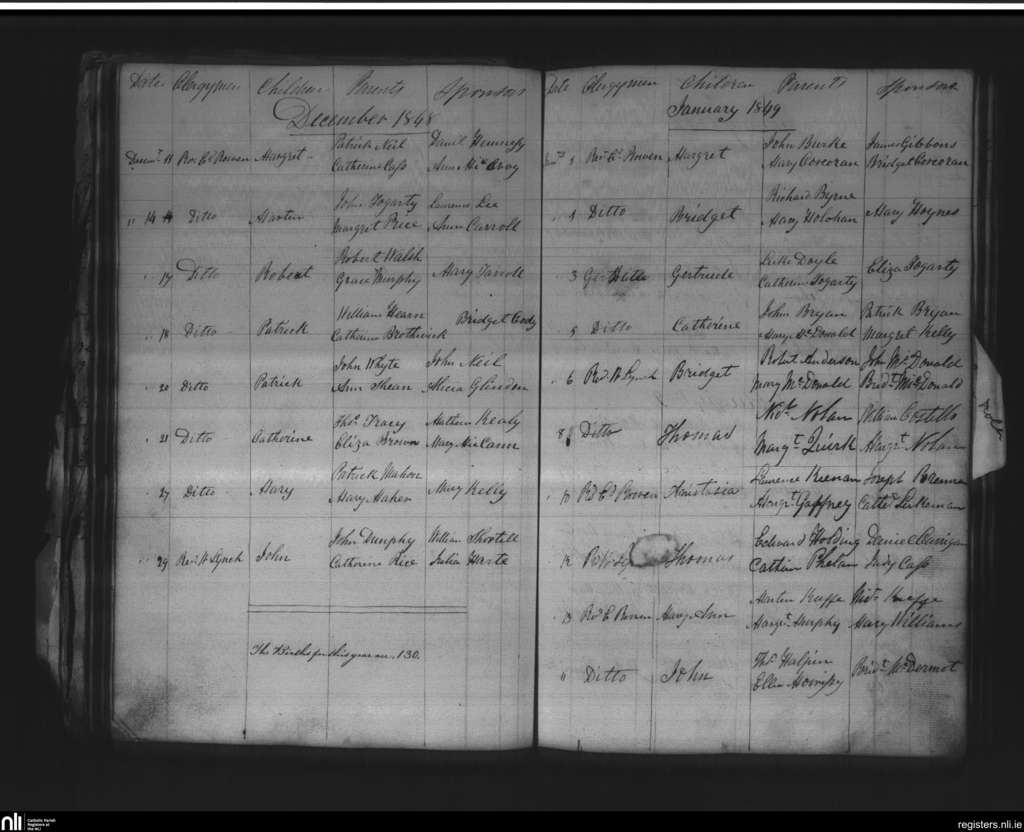 Date Clergymen Children Parents Sponsors
December 1848
Patrick Neil Daniel Hennessy
11 Rev. Ed. Bowen Margret
Catherine Cass Ann McEvoy
John Fogarty Laurence Lee
" 14 Ditto Martin
Margret Rice Ann Carroll
Robert Walsh
" 17 Ditto Robert Mary
Grace Murphy
William Hearn
" 18 Ditto Patrick Bridget Cody
Catherine Brothwick
John Whyte John Neil
" 20 Ditto Patrick
Ann Shean Alicia
Thos. Tracy Mathew Healy
" 21 Ditto Catherine
Eliza Brown Mary McCann
Patrick Mahon
" 27 Ditto Mary Mary Kelly
Mary Maher
John Dunphy William Shortell
" 29 Revd. W Lynch John
Catherine Rice Julia Harte
The Births for this year are 130.
Date Clergymen Children Parents Sponsors
January 1849
John Burke James Gibbons
1 Rev. Ed. Bowen Margret
Mary Corcoran Bridget Corcoran
Richard Byrne
" 1 Ditto Bridget Mary Hoynes
Mary Holohan
Luke Doyle
" 3 Gertrude Eliza Fogarty
Catherine Fogarty
John Bryan Patrick Bryan
" 5 Ditto Catherine
Mary McDonald Margret Kelly
Robert Anderson John McDonald
" 6 Revd. W Lynch Bridget
Mary McDonald Bridt. McDonald
Nichs. Nolan William Costello
8 Ditto Thomas
Margt. Quirk Margt. Nolan
Laurence Kienan Joseph Brennan
" 10 Rd. Ed. Bowen Anastasia
Margt. Gaffney Cathe.
Edward Holding Daniel
" 12 Thomas
Cathrin Phelan Judy Cass
Martin Keeffe Keeffe
" 13 Rd. E Bowen Mary Ann
Margt. Murphy Mary Williams
Thos. Halpin
" Ditto John Bridt. McDermot
Ellen
nli
Catholic Parish
Registers at
the NLI
registers.nli.ie